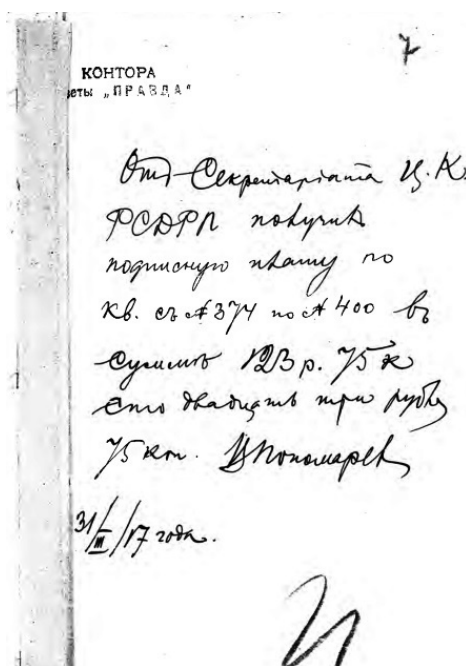 7
КОНТОРА
зеты „ПРАВДА“
Отъ Секретариата Ц. К.
РСДРП получилъ
подписную плату по
кв. съ № 374 по № 400 въ
суммѣ 123 р. 75 к
сто двадцать три рубля
75 коп. Пономарев
31/III/17 года.